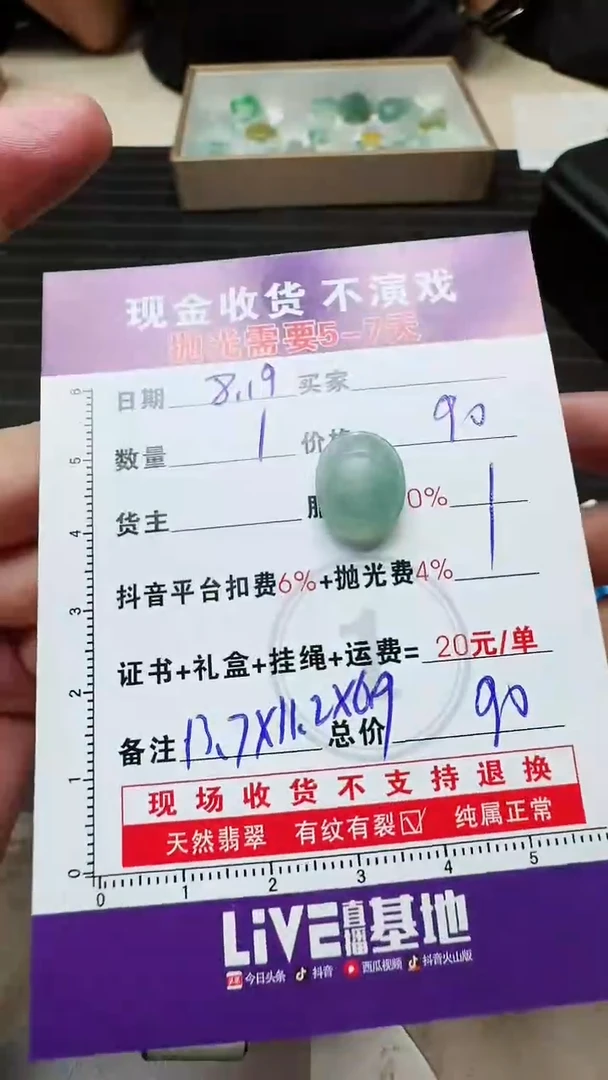 现金收货 不演戏
抛光需要5-7天
日期 8.19 买家
数量 1 价格 90
货主
0%
抖音平台扣费6%+抛光费4%
证书+礼盒+挂绳+运费= 20元/单
备注 13.7X11.2X6.9 总价 90
现场收货不支持退换
天然翡翠 有纹有裂☑ 纯属正常
LiVE直播基地
今日头条 抖音 西瓜视频 抖音火山版
6
5
4
3
2
1
0
0 1 2 3 4 5